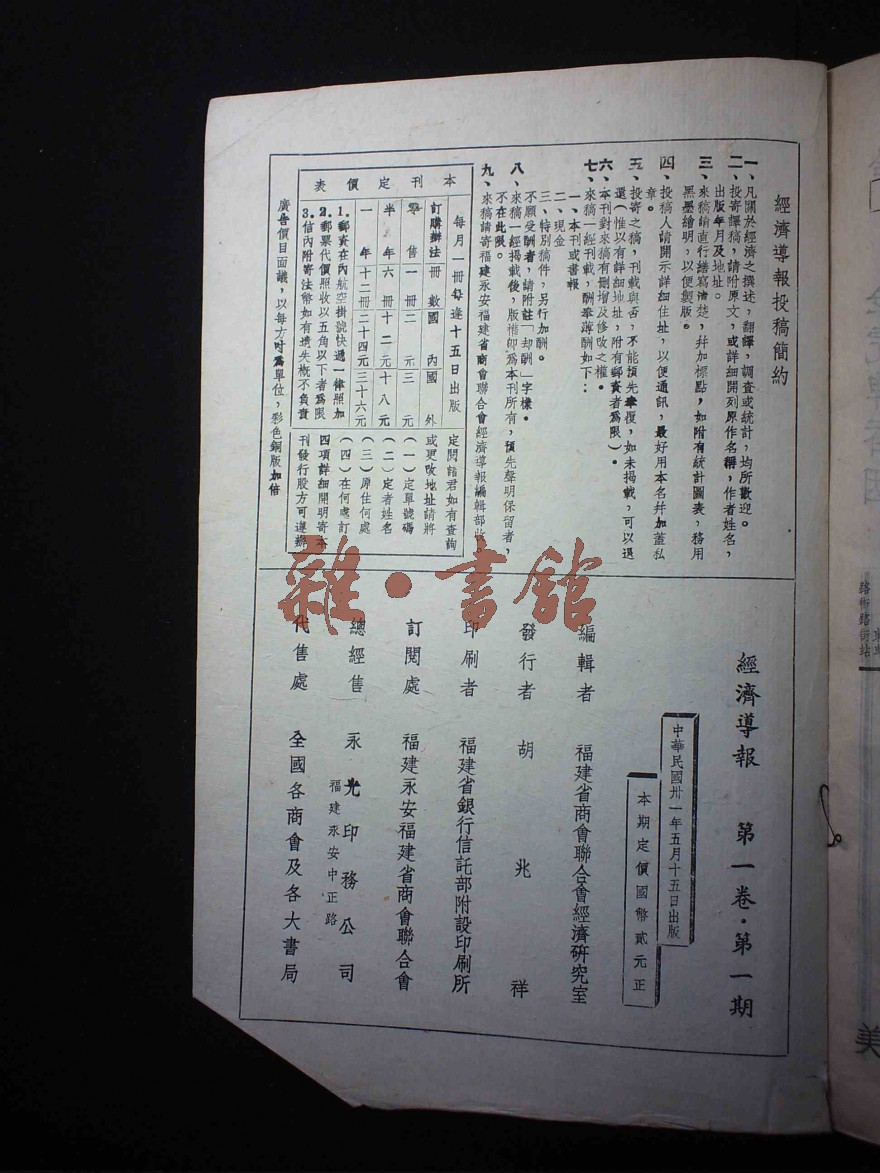 經濟導報投稿簡約
一、凡關於經濟之撰述，翻譯，調查或統計，均所歡迎。
二、投寄譯稿，請附原文，或詳細開列原作名稱，作者姓名，
出版年月及地址。
三、來稿請直行繕寫清楚，幷加標點，如附有統計圖表，務用
黑墨繪明，以便製版。
四、投稿人請開示詳細住址，以便通訊，最好用本名幷加蓋私
章。
五、投寄之稿，刊載與否，不能預先奉復，如未揭載，可以退
還（惟以有詳細地址，附有郵資者爲限）。
六、本刊對來稿有刪增及修改之權。
七、來稿一經刊載，酬奉薄酬如下：
一、本刊或書報
二、現金
三、特別稿件，另行加酬。
不願受酬者，請附註「却酬」字樣。
八、來稿一經揭載後，版權卽爲本刊所有，預先聲明保留者，
不在此限。
九、來稿請寄福建永安福建省商會聯合會經濟導報編輯部收。
本刊定價表
每月一冊每逢十五日出版
訂購辦法 冊數 國內 國外
零售 一冊 二元 三元
半年 六冊 十二元 十八元
一年 十二冊 二十四元 三十六元
1.郵資在內航空掛號快遞一律照加
2.郵票代價照收以五角以下者爲限
3.信內附寄法幣如有遺失概不負責
定閱諸君如有查詢
或更改地址請將
（一）定單號碼
（二）定者姓名
（三）原住何處
（四）在何處訂
四項詳細開明寄本
刊發行股方可遵辦
廣告價目面議，以每方吋爲單位，彩色銅版加倍
經濟導報　第一卷・第一期
中華民國卅一年五月十五日出版
本期定價國幣貳元正
編輯者　福建省商會聯合會經濟研究室
發行者　胡兆祥
印刷者　福建省銀行信託部附設印刷所
訂閱處　福建永安福建省商會聯合會
總經售　永光印務公司
福建永安中正路
代售處　全國各商會及各大書局
雜・書館
美